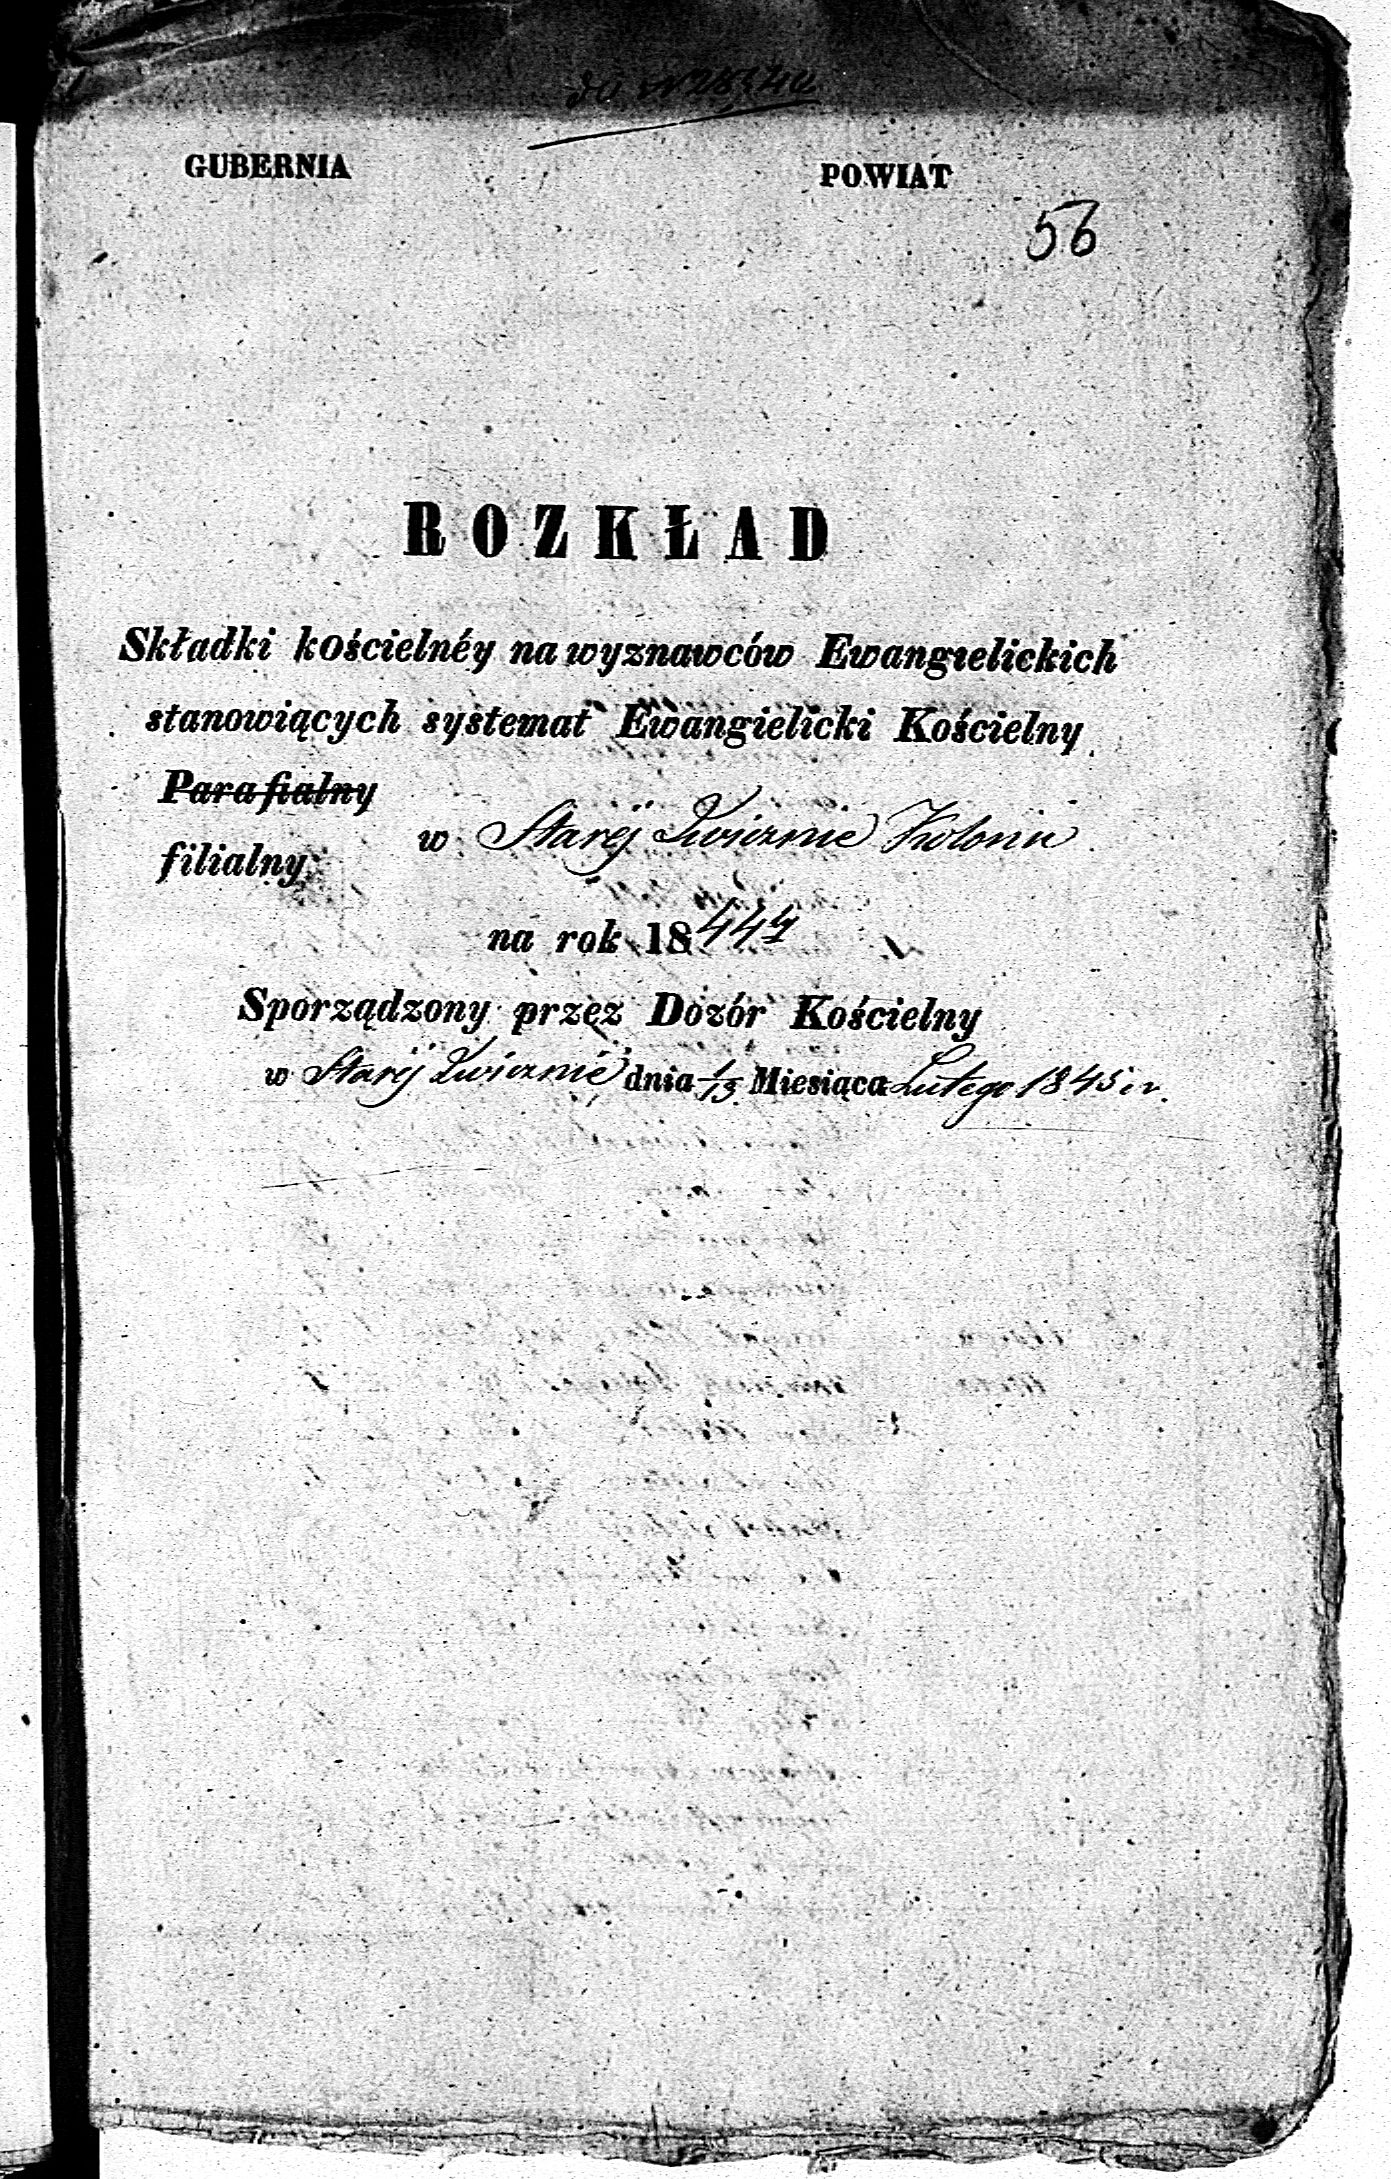 GUBERNIA POWIAT
56
ROZKŁAD
Składki kościelnéy na wyznawców Ewangielickich
stanowiących systemat Ewangielicki Kościelny
Parafialny
w Staréj Kolonii
filialny
na rok 18
Sporządzony przez Dozór Kościelny
w Staréj dnia 1/13 Miesiąca Lutego 1845 r.